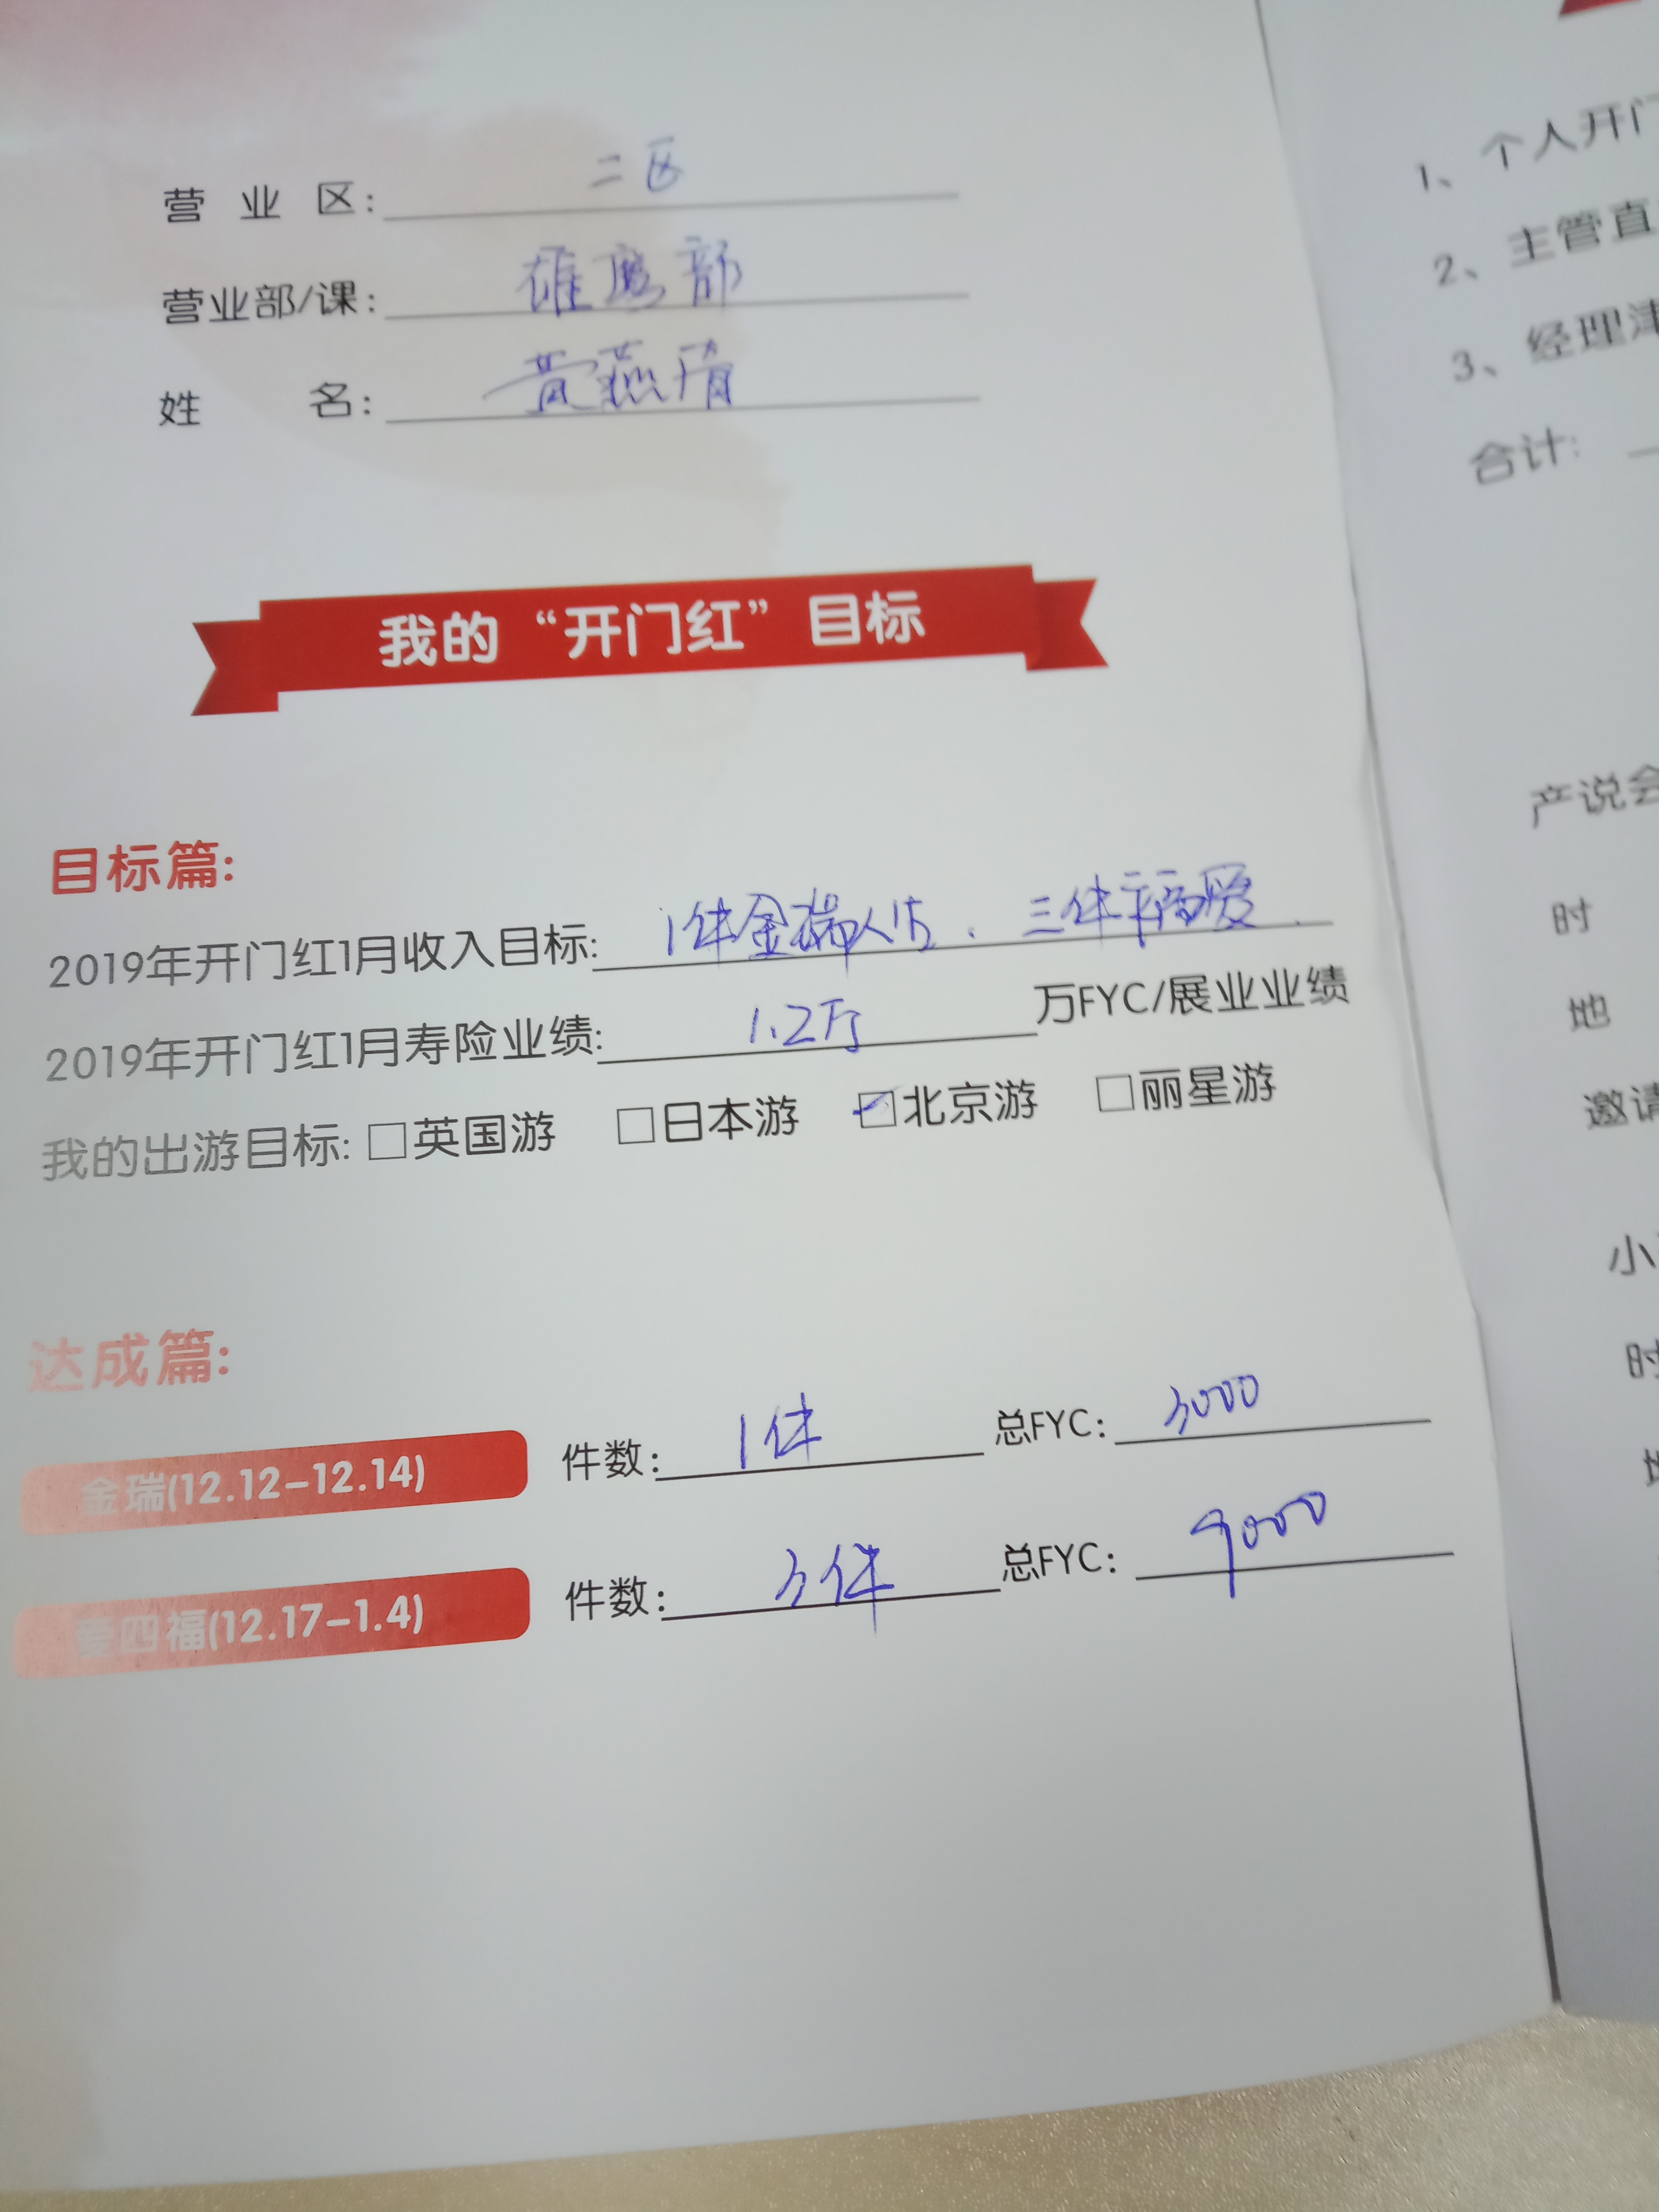 营 业 区: 二区
营业部/课: 雄鹰部
姓 名: 黄燕清
我的“开门红”目标
目标篇:
2019年开门红1月收入目标: 1件金瑞人生、三件福爱
2019年开门红1月寿险业绩: 1.2万 万FYC/展业业绩
我的出游目标: □英国游 □日本游 ☑北京游 □丽星游
达成篇:
金瑞(12.12-12.14) 件数: 1件 总FYC: 3000
爱四福(12.17-1.4) 件数: 3件 总FYC: 9000
1、个人开门
2、主管直
3、经理津
合计:
产说会
时
地
邀请
小
时
地